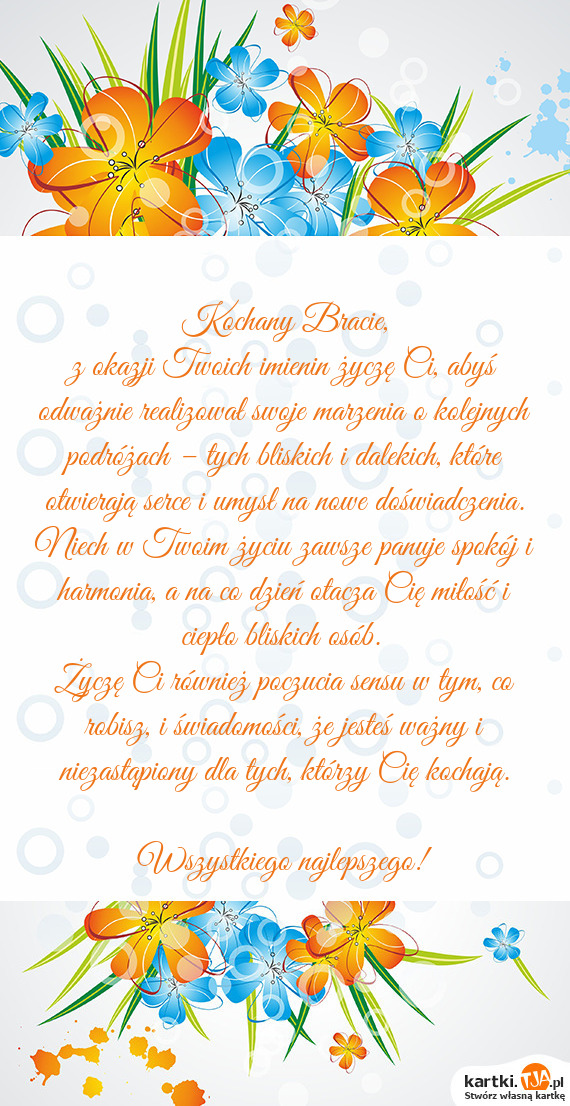 Kochany Bracie,
z okazji Twoich imienin życzę Ci, abyś
odważnie realizował swoje marzenia o kolejnych
podróżach – tych bliskich i dalekich, które
otwierają serce i umysł na nowe doświadczenia.
Niech w Twoim życiu zawsze panuje spokój i
harmonia, a na co dzień otacza Cię miłość i
ciepło bliskich osób.
Życzę Ci również poczucia sensu w tym, co
robisz, i świadomości, że jesteś ważny i
niezastąpiony dla tych, którzy Cię kochają.
Wszystkiego najlepszego!
kartki.TJA.pl
Stwórz własną kartkę